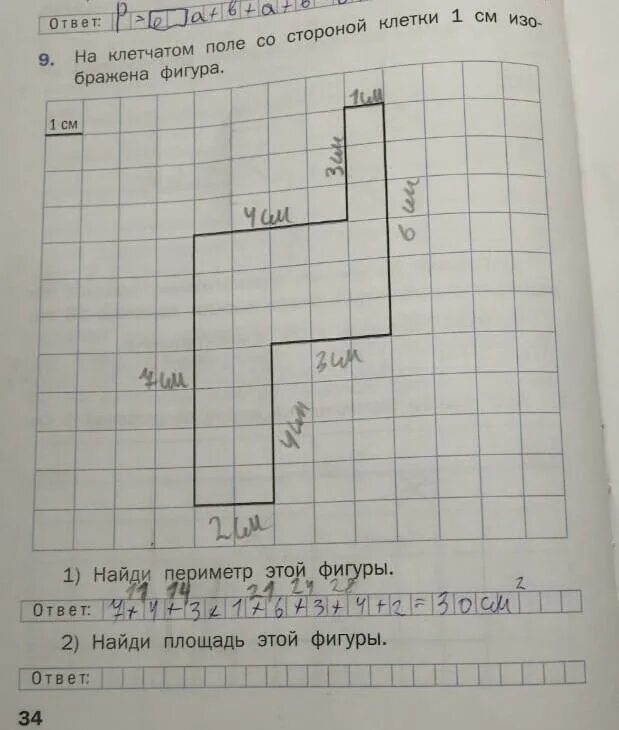 Ответ: P = 6 a+в+a+в
9. На клетчатом поле со стороной клетки 1 см изо-
бражена фигура.
1 см
1см
3см
4см
6 см
3см
7см
4см
2см
1) Найди периметр этой фигуры.
11 14 21 24 28
Ответ: 7+4+3+1+6+3+4+2=30см²
2) Найди площадь этой фигуры.
Ответ:
34